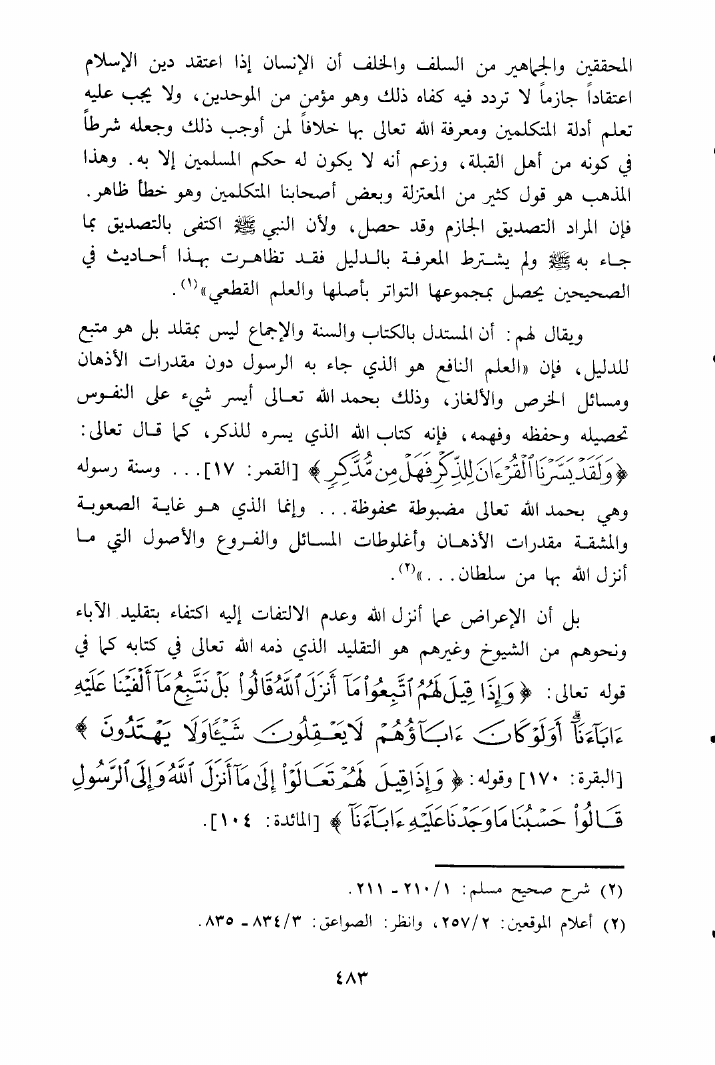 المحققين والجماهير من السلف والخلف أن الإنسان إذا اعتقد دين الإسلام
اعتقاداً جازماً لا تردد فيه كفاه ذلك وهو مؤمن من الموحدين، ولا يجب عليه
تعلم أدلة المتكلمين ومعرفة الله تعالى بها خلافاً لمن أوجب ذلك وجعله شرطاً
في كونه من أهل القبلة، وزعم أنه لا يكون له حكم المسلمين إلا به. وهذا
المذهب هو قول كثير من المعتزلة وبعض أصحابنا المتكلمين وهو خطأ ظاهر.
فإن المراد التصديق الجازم وقد حصل، ولأن النبي ﷺ اكتفى بالتصديق بما
جاء به ﷺ ولم يشترط المعرفة بالدليل فقد تظاهرت بهذا أحاديث في
الصحيحين يحصل بمجموعها التواتر بأصلها والعلم القطعي»(١).
ويقال لهم: أن المستدل بالكتاب والسنة والإجماع ليس بمقلد بل هو متبع
للدليل، فإن «العلم النافع هو الذي جاء به الرسول دون مقدرات الأذهان
ومسائل الخرص والألغاز، وذلك بحمد الله تعالى أيسر شيء على النفوس
تحصيله وحفظه وفهمه، فإنه كتاب الله الذي يسره للذكر، كما قال تعالى:
﴿وَلَقَدْ يَسَّرْنَا ٱلْقُرْءَانَ لِلذِّكْرِ فَهَلْ مِن مُّدَّكِرٍ﴾ [القمر: ١٧]... وسنة رسوله
وهي بحمد الله تعالى مضبوطة محفوظة... وإنما الذي هو غاية الصعوبة
والمشقة مقدرات الأذهان وأغلوطات المسائل والفروع والأصول التي ما
أنزل الله بها من سلطان...»(٢).
بل أن الإعراض عما أنزل الله وعدم الالتفات إليه اكتفاء بتقليد الآباء
ونحوهم من الشيوخ وغيرهم هو التقليد الذي ذمه الله تعالى في كتابه كما في
قوله تعالى: ﴿وَإِذَا قِيلَ لَهُمُ ٱتَّبِعُوا۟ مَآ أَنزَلَ ٱللَّهُ قَالُوا۟ بَلْ نَتَّبِعُ مَآ أَلْفَيْنَا عَلَيْهِ
ءَابَآءَنَآۗ أَوَلَوْ كَانَ ءَابَآؤُهُمْ لَا يَعْقِلُونَ شَيْـًٔا وَلَا يَهْتَدُونَ﴾
[البقرة: ١٧٠] وقوله: ﴿وَإِذَا قِيلَ لَهُمْ تَعَالَوْا۟ إِلَىٰ مَآ أَنزَلَ ٱللَّهُ وَإِلَى ٱلرَّسُولِ
قَالُوا۟ حَسْبُنَا مَا وَجَدْنَا عَلَيْهِ ءَابَآءَنَآ﴾ [المائدة: ١٠٤].
(٢) شرح صحيح مسلم: ٢١٠/١ ـ ٢١١.
(٢) أعلام الموقعين: ٢٥٧/٢، وانظر: الصواعق: ٨٣٤/٣ ـ ٨٣٥.
٤٨٣